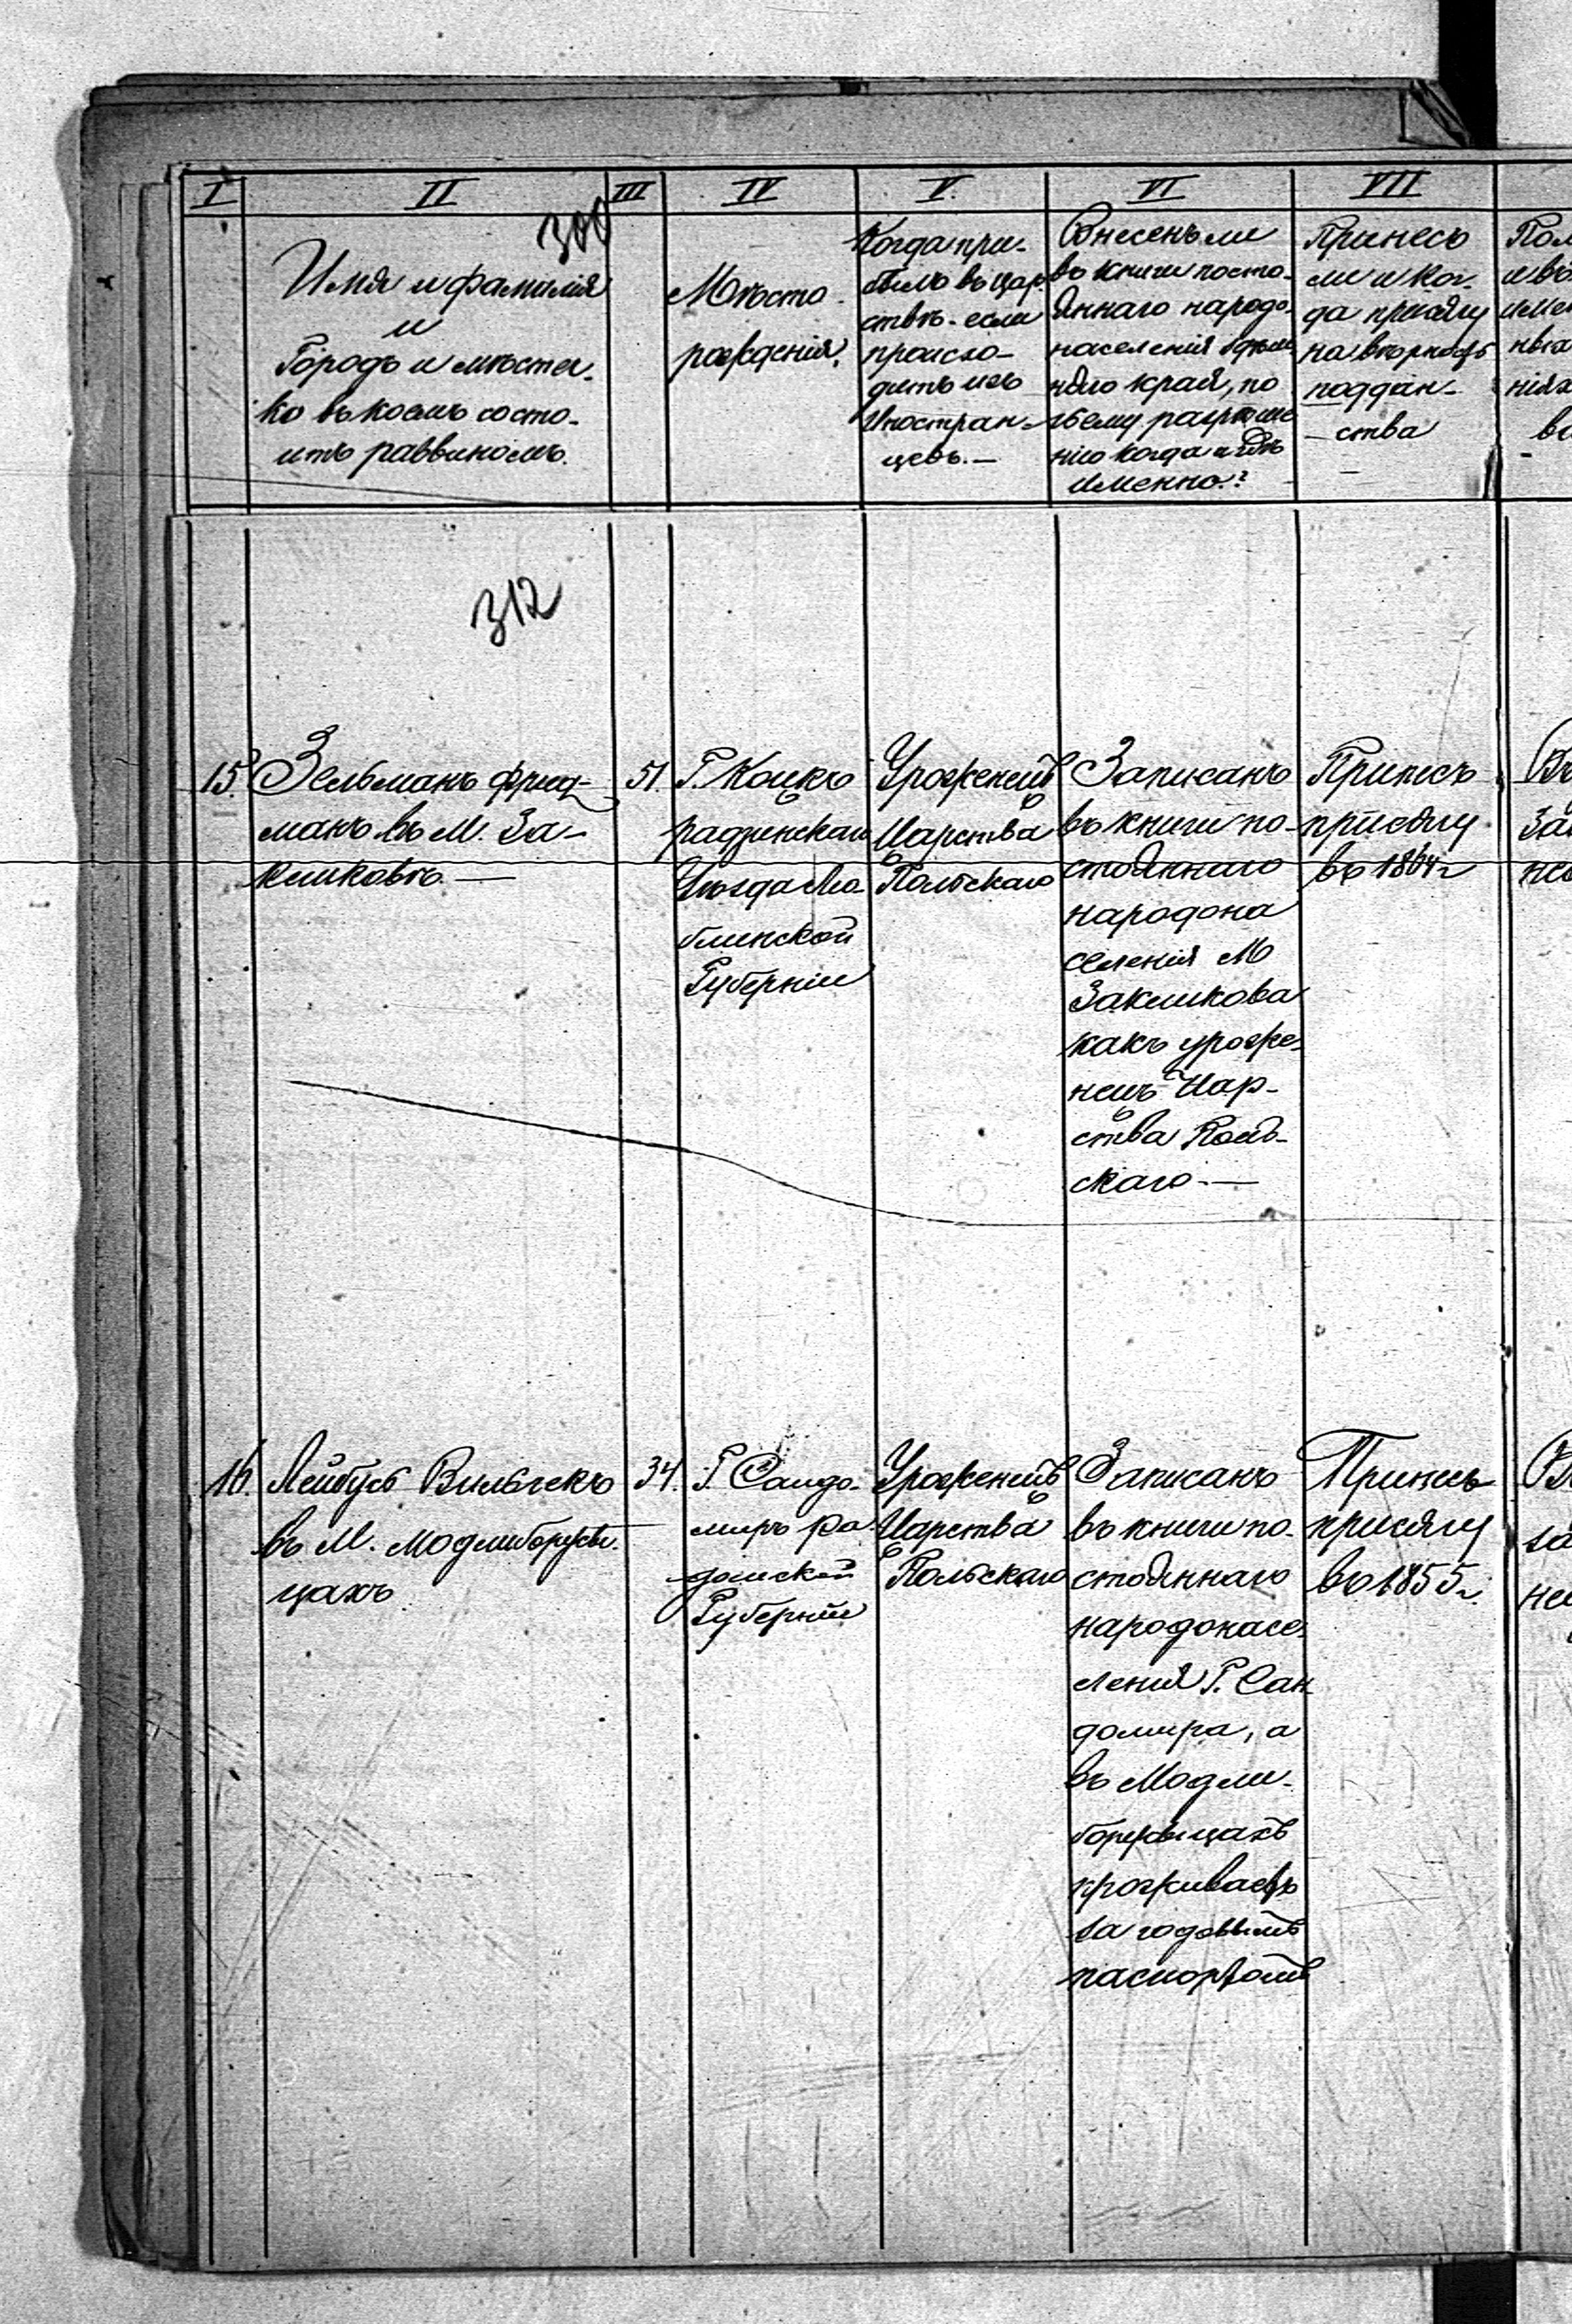 I
II
III
IV
V.
VI
VII
300
Имя и фамилія
и
Городъ и мѣстеч-
ко въ коемъ состо-
итъ раввиномъ.
Мѣсто
рожденія?
Когда при-
былъ въ Цар
ствѣ - если
происхо-
дитъ изъ
Иностран-
цевъ. —
Внесенъ ли
въ книги посто-
яннаго народо-
населенія здѣш
няго края, по
чьему разрѣше
нію когда и гдѣ
именно?
Принесъ
ли и ког-
да присягу
на вѣрность
поддан-
ства
312
15.
Зельманъ Фрид-
манъ въ М. За-
кликовѣ. —
51.
Г. Коцкъ
радзинскаго
Уѣзда Лю-
блинской
Губерніи
Уроженецъ
Царства
Польскаго
Записанъ
въ книги по-
стояннаго
народона
селенія М
Закликова
какъ уроже-
нецъ Цар-
ства Поль-
скаго. —
Принесъ
присягу
въ 1864 г
16.
Лейбусъ Вильчекъ
въ М. Модлиборжи-
цахъ
34.
Г. Сандо-
миръ Ра
домской
Губерніи
Уроженецъ
Царства
Польскаго
Записанъ
въ книги по-
стояннаго
народонасе-
ленія Г. Сан-
домира, а
въ Модли-
боржицахъ
проживаетъ
за годовымъ
паспортомъ
Принесъ
присягу
въ 1855 г.